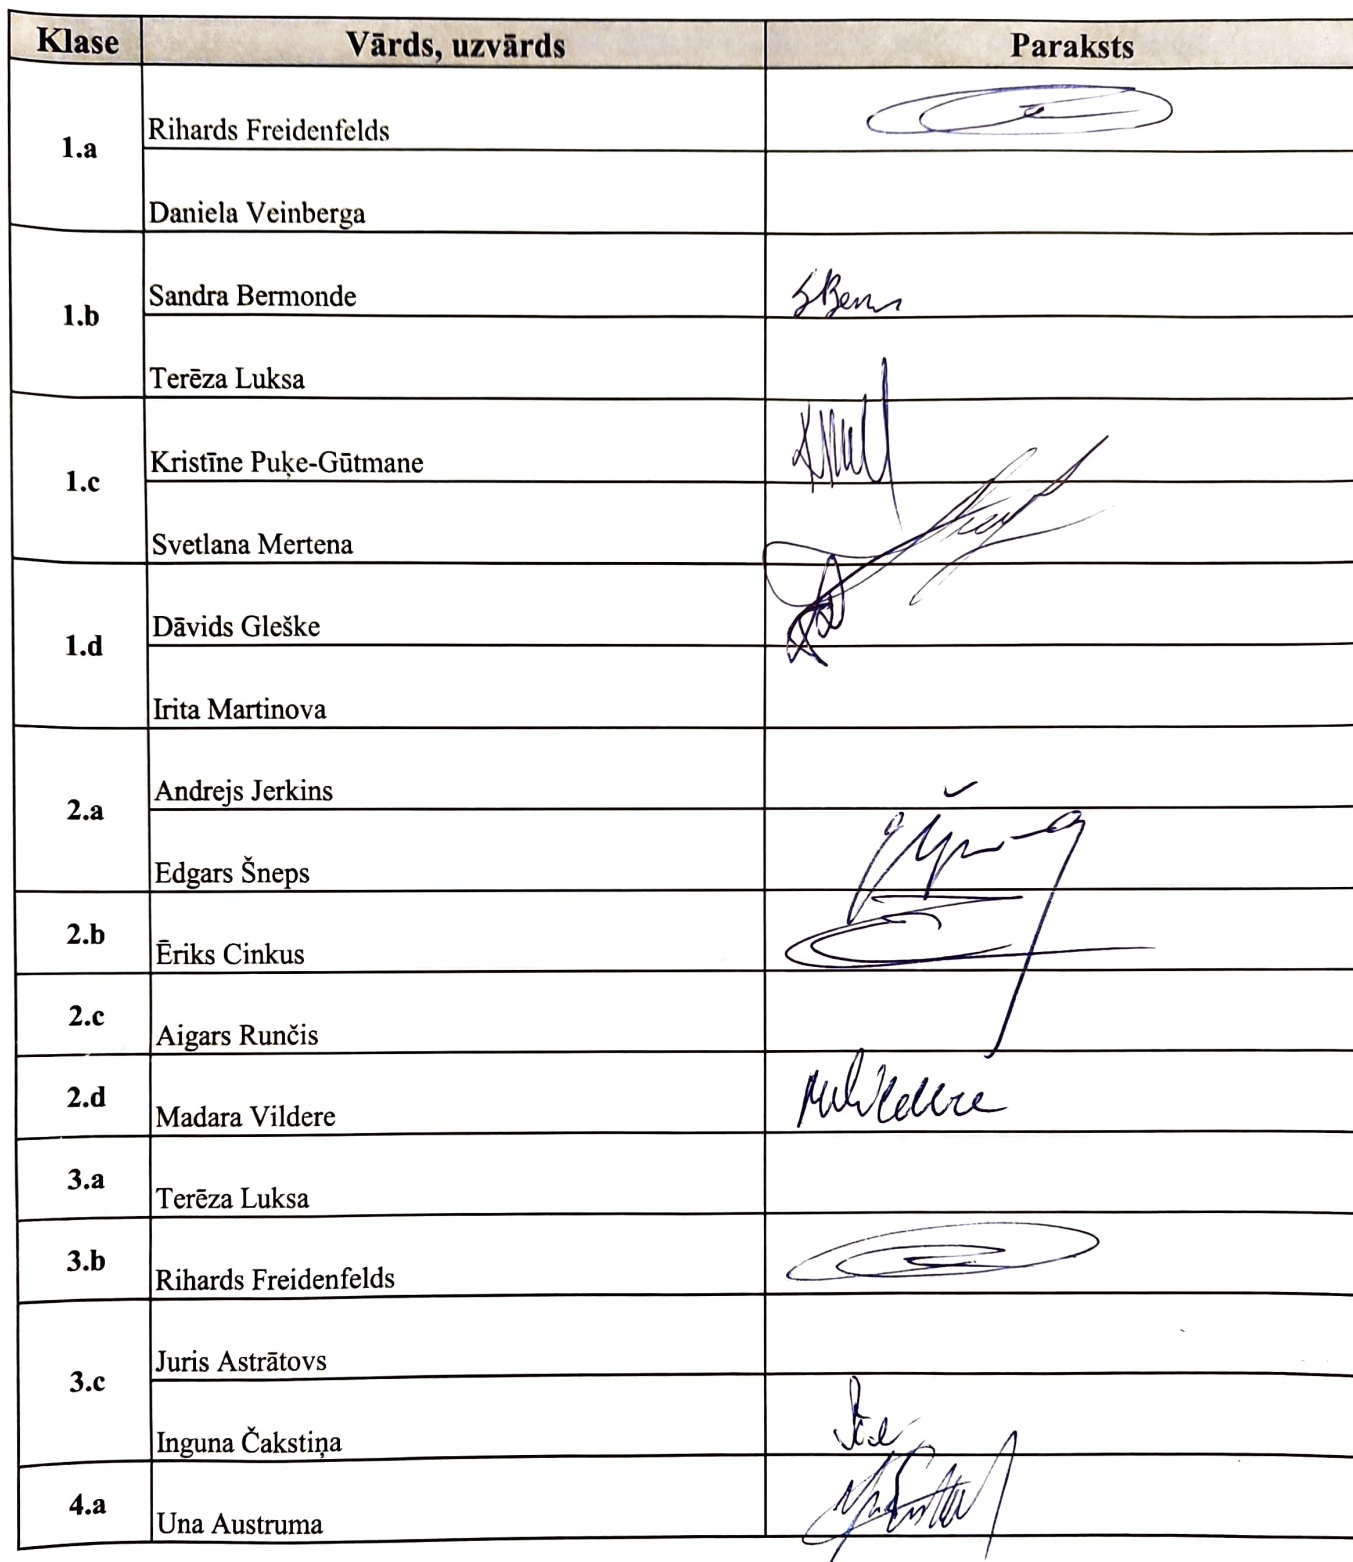 Klase Vārds, uzvārds Paraksts
1.a
Rihards Freidenfelds
Daniela Veinberga
1.b
Sandra Bermonde
Terēza Luksa
1.c
Kristīne Puķe-Gūtmane
Svetlana Mertena
1.d
Dāvids Gleške
Irita Martinova
2.a
Andrejs Jerkins
Edgars Šneps
2.b Ēriks Cinkus
2.c Aigars Runčis
2.d Madara Vildere
3.a Terēza Luksa
3.b Rihards Freidenfelds
3.c
Juris Astrātovs
Inguna Čakstiņa
4.a Una Austruma